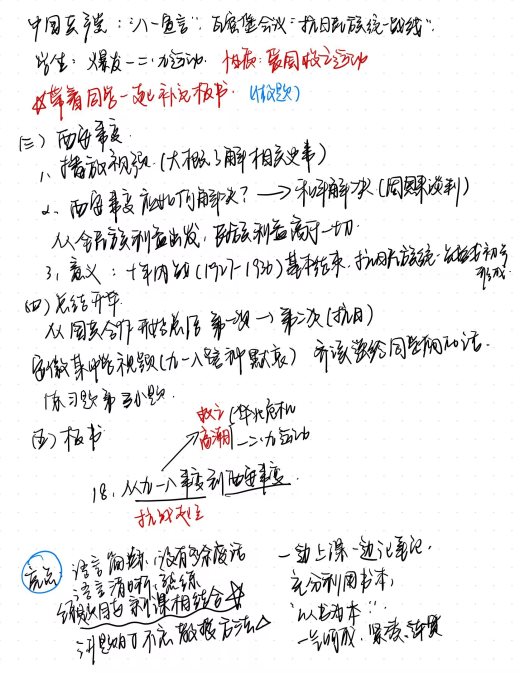 中国共产党：“八一宣言”，瓦窑堡会议“抗日民族统一战线”.
学生：爆发一二·九运动 抗日救国救亡运动
☆带着同学一起补充板书. (做题)
(三) 西安事变.
1、播放视频.(大概了解相关史事)
2、西安事变应如何解决？→和平解决(周恩来谈判)
从全民族利益出发，民族利益高于一切.
3、意义：十年内战(1927-1936)基本结束，抗日民族统一战线初步形成.
(四) 总结升华
从国共合作开始总结 第一次→第二次(抗日)
安徽某中学视频(九一八鸣钟默哀) 齐读 给同学们的话.
练习题 第 小题.
(五) 板书
救亡 华北危机
高潮 一二·九运动
18. 从九一八事变到西安事变.
抗战救亡
亮点
语言简练，没有多余废话
语言清晰、熟练
视频与新课相结合☆
习题 不忘教授方法△
一边上课一边记笔记，
充分利用书本，
“以书为本”.
一气呵成，紧凑、连贯